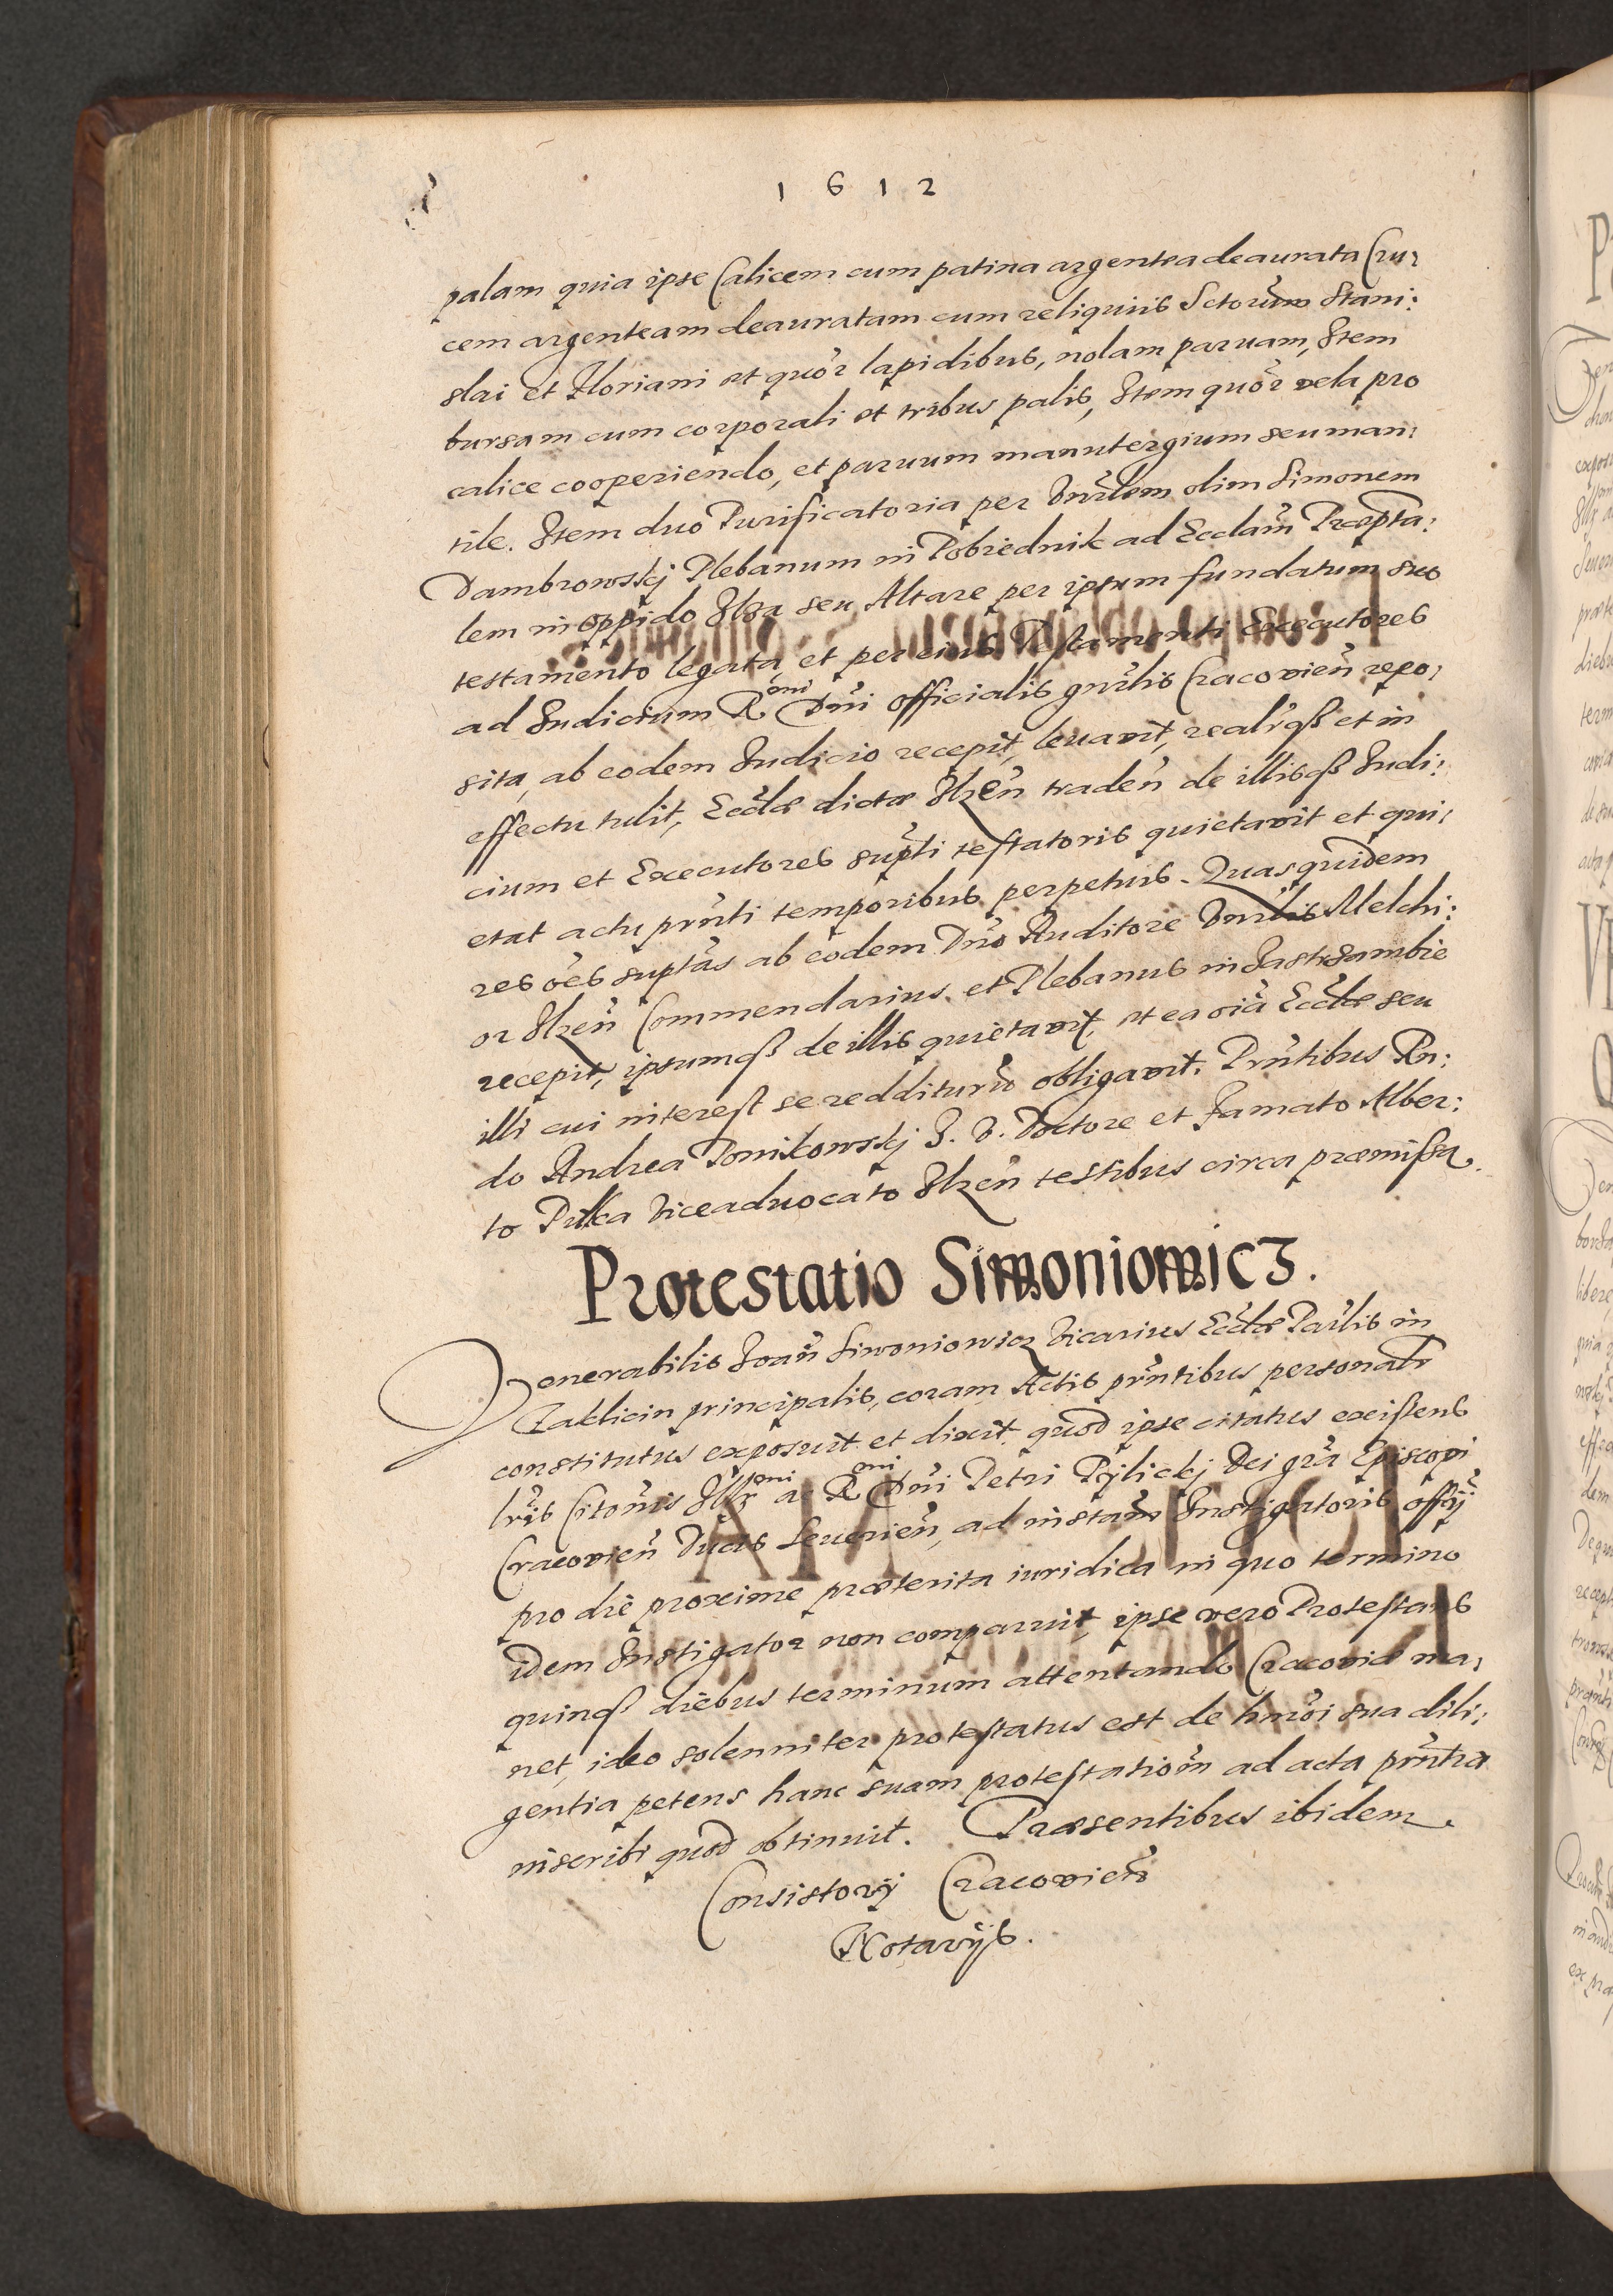 1612
palam quia ipse Calicem cum patina argentea deaurata Cru,
cem argenteam deauratam cum reliquiis Sctorum Stani:
slai et Floriani et quor lapidibus, nolam paruam, Item
bursam cum corporali et tribus palis, Item quor vela pro
calice cooperiendo, et paruum manutergium seu man:
tile. Item duo Purificatoria per Vnrlem olim Simonem
Dambrowskj Plebanum in Pobiednik ad Ecclam Præpta:
lem in oppido Ilza seu Altare per ipsum fundatum suo
testamento legata, et per eius Testamenti Executores
ad Iudicium Rmi Dni officialis gnrlis Cracovien repo,
sita, ab eodem Iudicio recepit, leuavit, realrqß et in
effectu tulit, Ecclæ dictæ Ilzen traden de illisqß Iudi:
cium et Executores supti testatoris quietavit et qui,
etat actu prnti temporibus perpetuis. Quas quidem
res oes suptas ab eodem Dno Auditore Vnrlis Melchi:
or Ilzen Commendarius et Plebanus in Jastrzambie
recepit, ipsumqß de illis quietavit, et ea oia Ecclæ seu
illi cui interest se redditurum obligavit. Prntibus Rn:
do Andrea Ponikowskj I. V. Doctore et famato Alber:
to Pilka Viceaduocato Ilzen testibus circa præmissa.
Protestatio Simoniowicz.
Venerabilis Joan Simoniowicz Vicarius Ecclæ Parlis in
Zaklicin principalis, coram Actis prntibus personalr
constitutus exposuit et dixit quod ipse citatus existens
lris Citonis Illmi ac Rmi Dni Petri Tylickj Dei gra Episcopi
Cracovien Ducis Seuerien, ad instam Instigatoris offij
pro die proxime præterita iuridica in quo termino
idem Instigator non comparuit, ipse vero Protestans
quinqß diebus terminum attentando Cracoviæ ma,
net, ideo solenniter protestatus est de hmoi sua dili:
gentia petens hanc suam protestationem ad acta prntia
inscribi quod obtinuit. Præsentibus ibidem
Consistorij Cracovien
Notarijs.